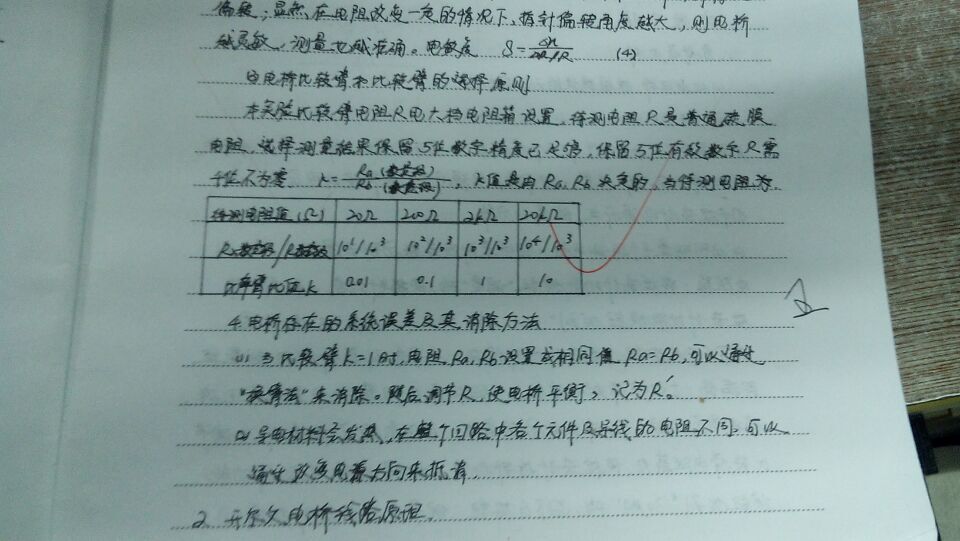 偏转；显然，在电阻改变一定的情况下，指针偏转角度越大，则电桥
越灵敏，测量也越准确。电敏度 S=Δn/ΔR/R (4)
电桥比较臂和比较臂的选择原则
本实验比较臂电阻R电大档电阻箱设置，待测电阻R是普通碳膜
电阻，选择测量结果保留5位数字精度已足够，保留5位有效数字R需
4位不为零 k=Ra(数量级)/Rb(数量级)，k值是由Ra、Rb决定的，当待测电阻为
待测电阻值(Ω) 20Ω 200Ω 2kΩ 20kΩ
Ra数量级/Rb数量级 10¹/10³ 10²/10³ 10³/10³ 10⁴/10³
比率臂比值k 0.01 0.1 1 10
4.电桥存在的系统误差及其消除方法
(1) 当比较臂k=1时，电阻Ra、Rb设置成相同值 Ra=Rb，可以通过
"换臂法"来消除。随后调节R，使电桥平衡，记为R′。
(2) 导电材料会发热，在整个回路中各个元件及导线的电阻不同，可以
通过改变电源方向来抵消
2. 开尔文电桥线路原理。